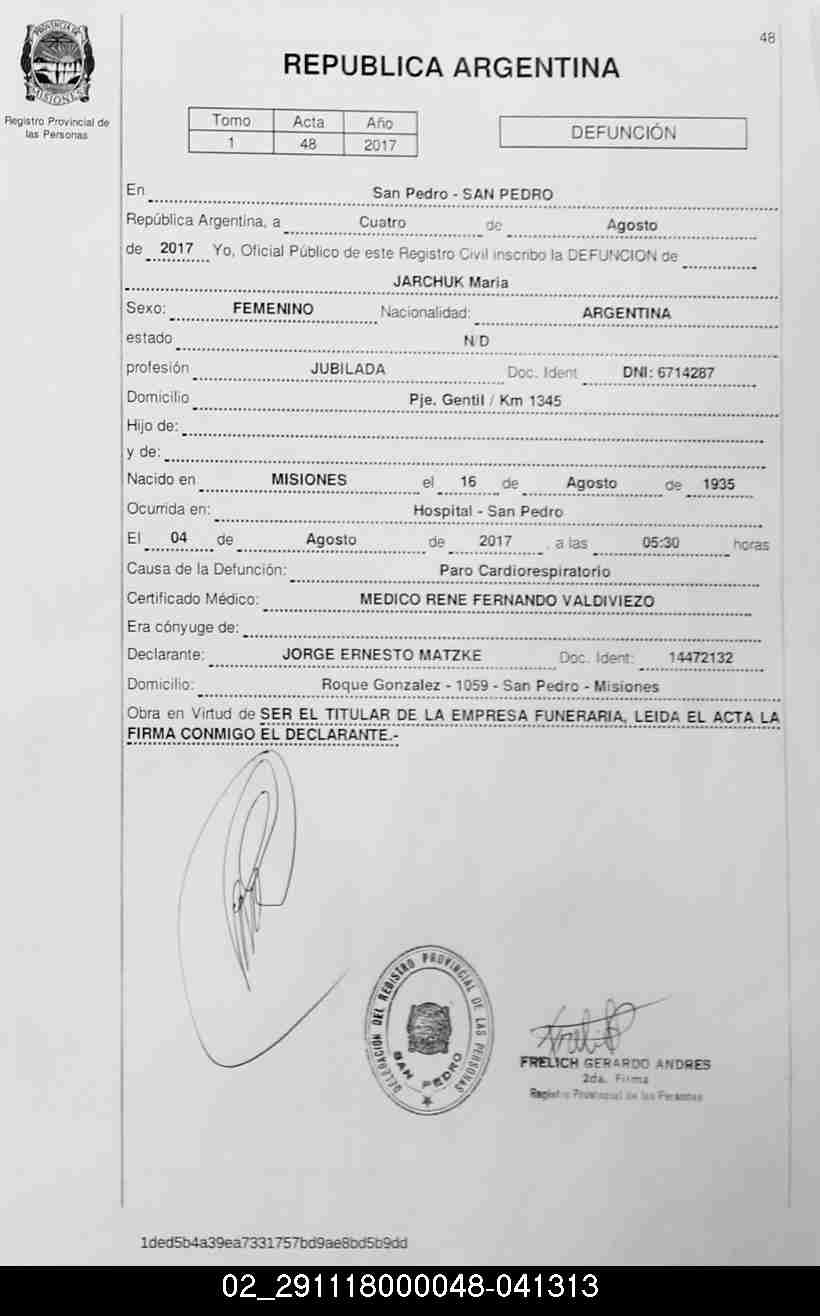 48
PROVINCIA DE
MISIONES
Registro Provincial de
las Personas
REPUBLICA ARGENTINA
Tomo Acta Año
1 48 2017
DEFUNCIÓN
En San Pedro - SAN PEDRO
República Argentina, a Cuatro de Agosto
de 2017 Yo, Oficial Público de este Registro Civil inscribo la DEFUNCION de
JARCHUK Maria
Sexo: FEMENINO Nacionalidad: ARGENTINA
estado N/D
profesión JUBILADA Doc. Ident DNI: 6714287
Domicilio Pje. Gentil / Km 1345
Hijo de:
y de:
Nacido en MISIONES el 16 de Agosto de 1935
Ocurrida en: Hospital - San Pedro
El 04 de Agosto de 2017, a las 05:30 horas
Causa de la Defunción: Paro Cardiorespiratorio
Certificado Médico: MEDICO RENE FERNANDO VALDIVIEZO
Era cónyuge de:
Declarante: JORGE ERNESTO MATZKE Doc. Ident: 14472132
Domicilio: Roque Gonzalez - 1059 - San Pedro - Misiones
Obra en Virtud de SER EL TITULAR DE LA EMPRESA FUNERARIA, LEIDA EL ACTA LA
FIRMA CONMIGO EL DECLARANTE.-
DELEGACION DEL REGISTRO PROVINCIAL DE LAS PERSONAS
SAN PEDRO
FRELICH GERARDO ANDRES
2da. Firma
Registro Provincial de las Personas
1ded5b4a39ea7331757bd9ae8bd5b9dd
02_291118000048-041313